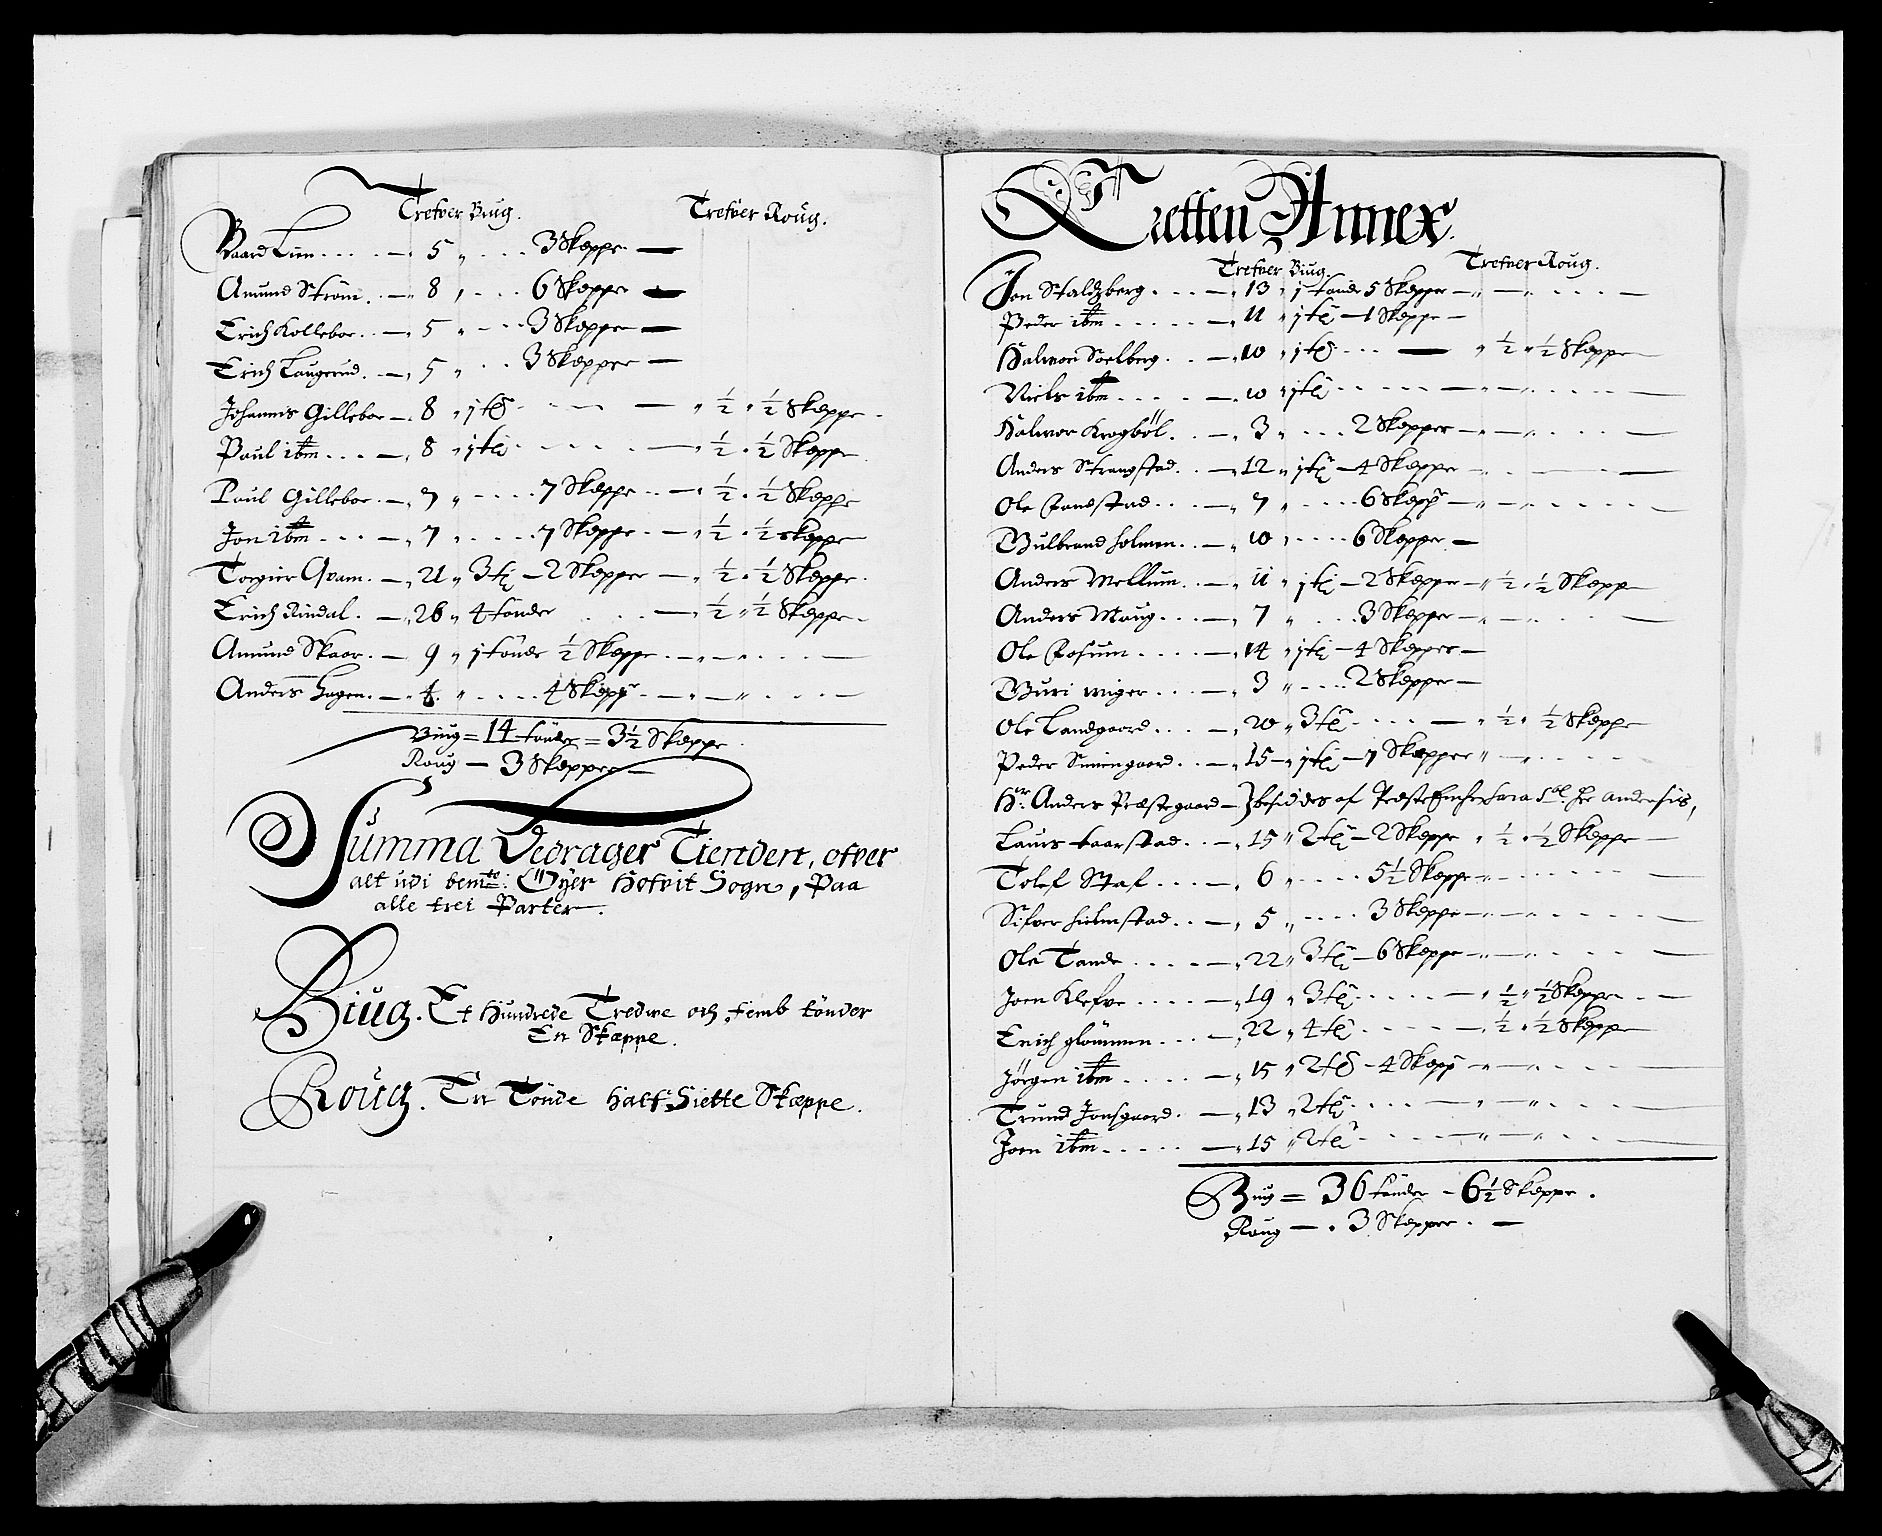 Trefver Biug. Trefver Roug.
Baard Lien . . . . — 5 „ . . . . 3 Skeppe —
Amund Ström . — 8 „ . . . . 6 Skeppe —
Erich Kolleboe . . — 5 „ . . . . 3 Skepper —
Erich Laugerud . — 5 „ . . . 3 Skepper —
Johannis Gilleboe — 8 „ j tö . . . . — „ ½ „ ½ Skeppe .
Paul ibm . . . — 8 „ j tö . . . . — „ ½ „ ½ Skeppe .
Paul Gilleboe . — 7 „ . . . . 7 Skeppe . . — „ ½ „ ½ Skeppe
Jon ibm . . . — 7 „ . . . . 7 Skeppe . . — „ ½ „ ½ skeppe
Torgier Qvam . — 21 „ 3 tö — 2 Skepper — „ ½ „ ½ Skeppe .
Erich Rindal . — 26 „ 4 tönder . . . — „ ½ „ ½ Skeppe .
Amund Skaar . — 9 „ j tönde ½ Skeppe . — „ — „ . . . —
Anders Hagen . — 4 „ . . . . 4 Skepp — „ — „ . . . —
Biug = 14 tönder = 3½ Skeppe .
Roug — 3 Skepper —
Summa Bedrager Tienden, ofver
alt udi bemte: Öyer Hofvit Sogn, Paa
alle trei Parter .
Biug. Et Hundrede Tredive och femb tönder
En Skeppe .
Roug. En Tönde Half Siette Skeppe .
Tretten Annex .
Trefver Biug. Trefver Roug .
Jon Staldzberg . . . — 13 „ j tönde 5 Skepper — „ — . . . . —
Peder ibm . . . . . — 11 „ j tö — 1 Skeppe —
Halwor Soelberg . . — 10 „ j tö . . . — „ ½ „ ½ Skeppe
Niels ibm . . . . — 10 „ j tö . . . . . — „ — „ . . . —
Halwor Krogböl . . — 3 „ . . . . 2 Skepper — „ — „ . . —
Anders Strangstad . . — 12 „ j tö — 4 Skepper — „ . . — —
Ole Randstad . . . — 7 „ . . . . 6 Skepp — „ — „ . . . . —
Gulbrand Holmen . . — 10 „ . . . . 6 Skepper —
Anders Mellum . . — 11 „ j tö — 2 Skepper — „ ½ „ ½ Skeppe
Anders Moug . . . — 7 „ . . . 3 Skepper — „ — „ . . —
Ole Rosum . . . . — 14 „ j tö — 4 Skepper —
Guri . . . — 3 „ . . . . 2 Skepper —
Ole Landgaard . . . — 20 „ 3 tö . . . . — „ ½ „ ½ Skeppe
Peder Simengaard . . — 15 — j tö — 7 Skepper „ — „ . . . .
Hr. Anders Præstegaard — besiddes af
Laurs taarstad . . — 15 „ 2 tö — 2 Skeppe „ ½ „ ½ Skeppe —
Tolef Staf . . . — 6 „ . . . . 5½ Skeppe „ . . . . . —
Sifver hielmstad . . — 5 „ . . . . 3 Skeppe — „ — „ . . . . —
Ole Tande . . . . — 22 „ 3 tö — 6 Skeppe — „ — „ . . . —
Joen Klefve . . . . — 19 „ 3 tö . . . . . — „ ½ „ ½ Skeppe . . —
Erich glömmen . . . — 22 „ 4 tö . . . . . — „ ½ „ ½ Skeppe
Jörgen ibm . . . . — 15 „ 2 tö — 4 Skepp „ — „ . . . —
Trund Jonsgaard . — 13 „ 2 tö . . . . — „ — „ . . . —
Joen ibm . . . . . — 15 „ 2 tö . . . . — „ — „ . . . —
Biug = 36 tönder — 6½ Skeppe .
Roug — . 3 Skepper . —